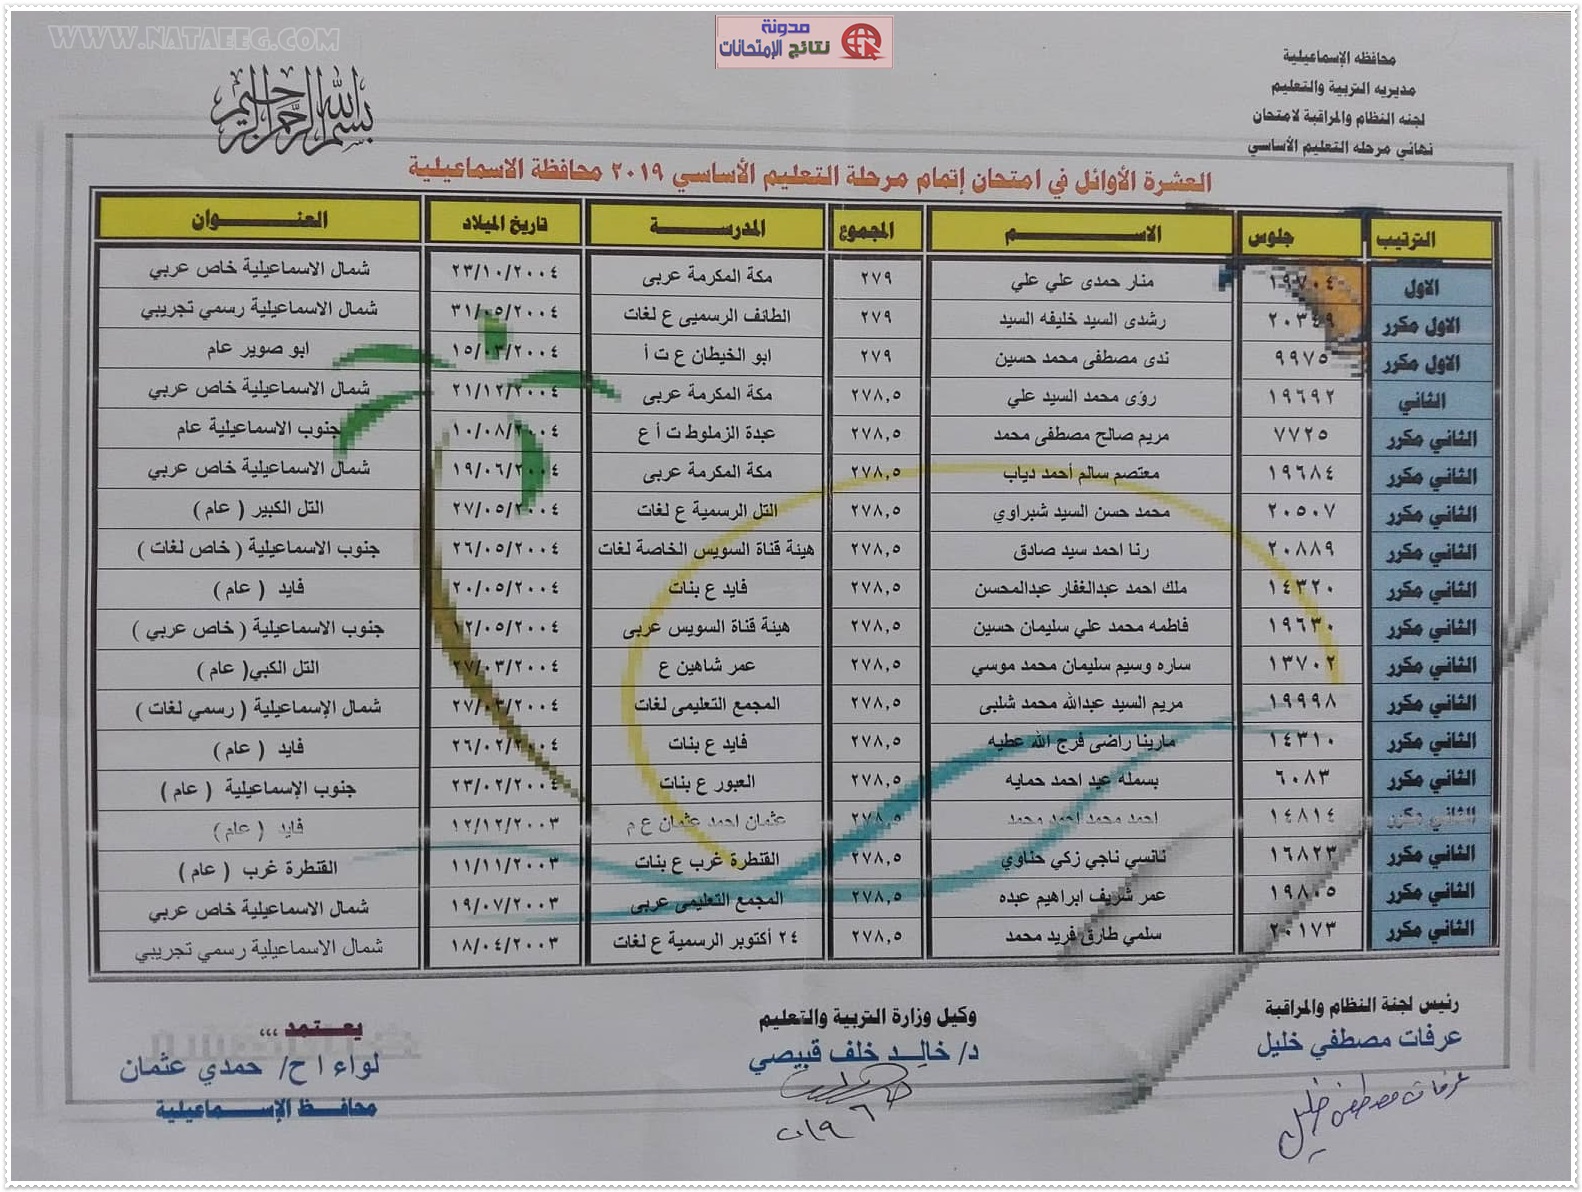 WWW.NATAEEG.COM
مدونة
نتائج الإمتحانات
محافظه الإسماعيلية
مديريه التربية والتعليم
لجنه النظام والمراقبة لامتحان
نهائي مرحله التعليم الأساسي
بسم الله الرحمن الرحيم
العشرة الأوائل في امتحان إتمام مرحلة التعليم الأساسي ٢٠١٩ محافظة الاسماعيلية
الترتيب جلوس الاسم المجموع المدرسة تاريخ الميلاد العنوان
الاول ١٩٧٠٤ منار حمدى علي علي ٢٧٩ مكة المكرمة عربى ٢٣/١٠/٢٠٠٤ شمال الاسماعيلية خاص عربي
الاول مكرر ٢٠٣٤٩ رشدى السيد خليفه السيد ٢٧٩ الطائف الرسميى ع لغات ٣١/٠٥/٢٠٠٤ شمال الاسماعيلية رسمي تجريبي
الاول مكرر ٩٩٧٥ ندى مصطفى محمد حسين ٢٧٩ ابو الخيطان ع ت أ ١٥/٠٣/٢٠٠٤ ابو صوير عام
الثاني ١٩٦٩٢ رؤى محمد السيد علي ٢٧٨,٥ مكة المكرمة عربى ٢١/١٢/٢٠٠٤ شمال الاسماعيلية خاص عربي
الثاني مكرر ٧٧٢٥ مريم صالح مصطفى محمد ٢٧٨,٥ عبدة الزملوط ت أ ع ١٠/٠٨/٢٠٠٤ جنوب الاسماعيلية عام
الثاني مكرر ١٩٦٨٤ معتصم سالم أحمد دياب ٢٧٨,٥ مكة المكرمة عربى ١٩/٠٦/٢٠٠٤ شمال الاسماعيلية خاص عربي
الثاني مكرر ٢٠٥٠٧ محمد حسن السيد شبراوي ٢٧٨,٥ التل الرسمية ع لغات ٢٧/٠٥/٢٠٠٤ التل الكبير ( عام )
الثاني مكرر ٢٠٨٨٩ رنا احمد سيد صادق ٢٧٨,٥ هيئة قناة السويس الخاصة لغات ٢٦/٠٥/٢٠٠٤ جنوب الاسماعيلية ( خاص لغات )
الثاني مكرر ١٤٣٢٠ ملك احمد عبدالغفار عبدالمحسن ٢٧٨,٥ فايد ع بنات ٢٠/٠٥/٢٠٠٤ فايد ( عام )
الثاني مكرر ١٩٦٣٠ فاطمه محمد علي سليمان حسين ٢٧٨,٥ هيئة قناة السويس عربى ١٢/٠٥/٢٠٠٤ جنوب الاسماعيلية ( خاص عربي )
الثاني مكرر ١٣٧٠٢ ساره وسيم سليمان محمد موسي ٢٧٨,٥ عمر شاهين ع ٢٧/٠٣/٢٠٠٤ التل الكبي( عام )
الثاني مكرر ١٩٩٩٨ مريم السيد عبدالله محمد شلبى ٢٧٨,٥ المجمع التعليمى لغات ٢٧/٠٣/٢٠٠٤ شمال الإسماعيلية ( رسمي لغات )
الثاني مكرر ١٤٣١٠ مارينا راضى فرج الله عطيه ٢٧٨,٥ فايد ع بنات ٢٦/٠٢/٢٠٠٤ فايد ( عام )
الثاني مكرر ٦٠٨٣ بسمله عيد احمد حمايه ٢٧٨,٥ العبور ع بنات ٢٣/٠٢/٢٠٠٤ جنوب الإسماعيلية ( عام )
الثاني مكرر ١٤٨١٤ احمد محمد احمد محمد ٢٧٨,٥ عثمان احمد عثمان ع م ١٢/١٢/٢٠٠٣ فايد ( عام )
الثاني مكرر ١٦٨٢٣ نانسي ناجي زكي حناوي ٢٧٨,٥ القنطرة غرب ع بنات ١١/١١/٢٠٠٣ القنطرة غرب ( عام )
الثاني مكرر ١٩٨٠٥ عمر شريف ابراهيم عبده ٢٧٨,٥ المجمع التعليمى عربى ١٩/٠٧/٢٠٠٣ شمال الاسماعيلية خاص عربي
الثاني مكرر ٢٠١٧٣ سلمي طارق فريد محمد ٢٧٨,٥ ٢٤ أكتوبر الرسمية ع لغات ١٨/٠٤/٢٠٠٣ شمال الاسماعيلية رسمي تجريبي
رئيس لجنة النظام والمراقبة
عرفات مصطفي خليل
عرفات مصطفى خليل
وكيل وزارة التربية والتعليم
د/ خالد خلف قبيصي
يعتمد ،،،
لواء ا ح/ حمدي عثمان
محافظ الإسماعيلية